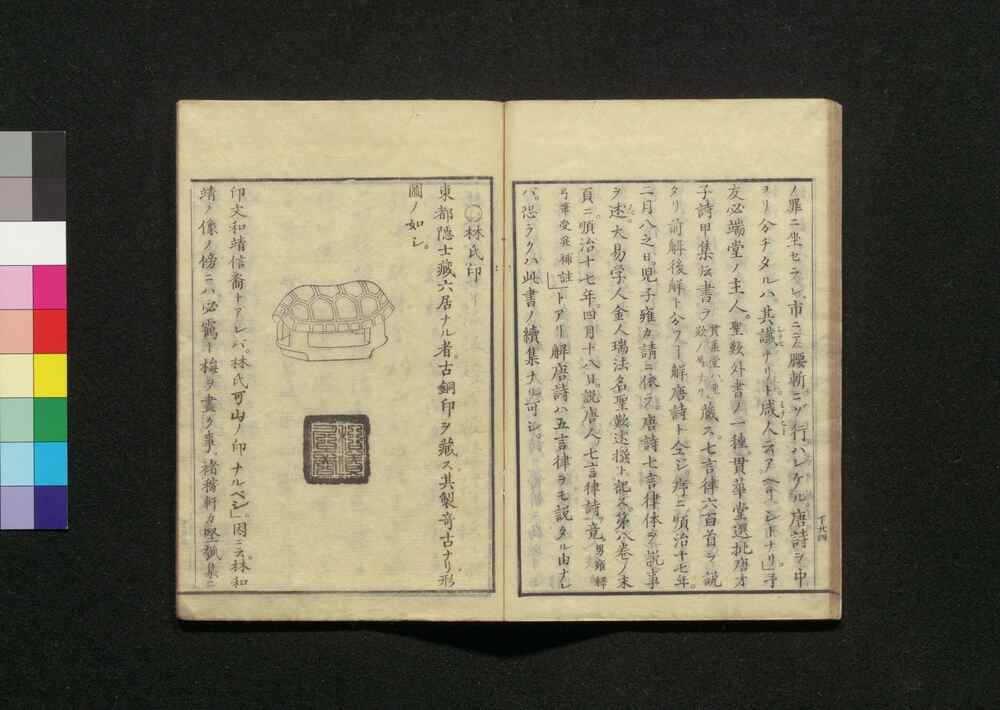 ノ罪ニ坐セラレ市ニ腰斬ニゾ行ハレケル。唐詩ヲ中
ヨリ分チタルハ其讖ナリト或人云
友必端堂ノ主人。聖歎外書ノ一種。貫華堂選批唐才
子詩甲集 藏ス。七言律六百首ヲ説
タリ前解後解ト分ツ 解唐詩ト全シ。序ニ順治十七年。
二月八之日。児子雍カ請ニ依テ。唐詩七言律体ヲ説事
ヲ述。大易学人金人瑞法名聖歎述撰ト記ス。第八巻ノ末
頁ニ。順治十七年。四月十八日。説唐人七言律詩竟。男雍釋
弓筆受并補註」トアリ解唐詩ハ五言律ヲモ説タル由ナレ
バ。恐ラクハ此書ノ續集ナル可シ。
下北四
○林氏印
東都隠士藏六居ナル者。古銅印ヲ藏ス其製奇古ナリ形
圖ノ如シ。
印文和靖信裔トアレバ。林氏可山ノ印ナルベシ」。因ニ云。林和
靖ノ像ノ傍ニハ必靏ト梅ヲ畫ク事。褚稼軒カ堅瓠集ニ